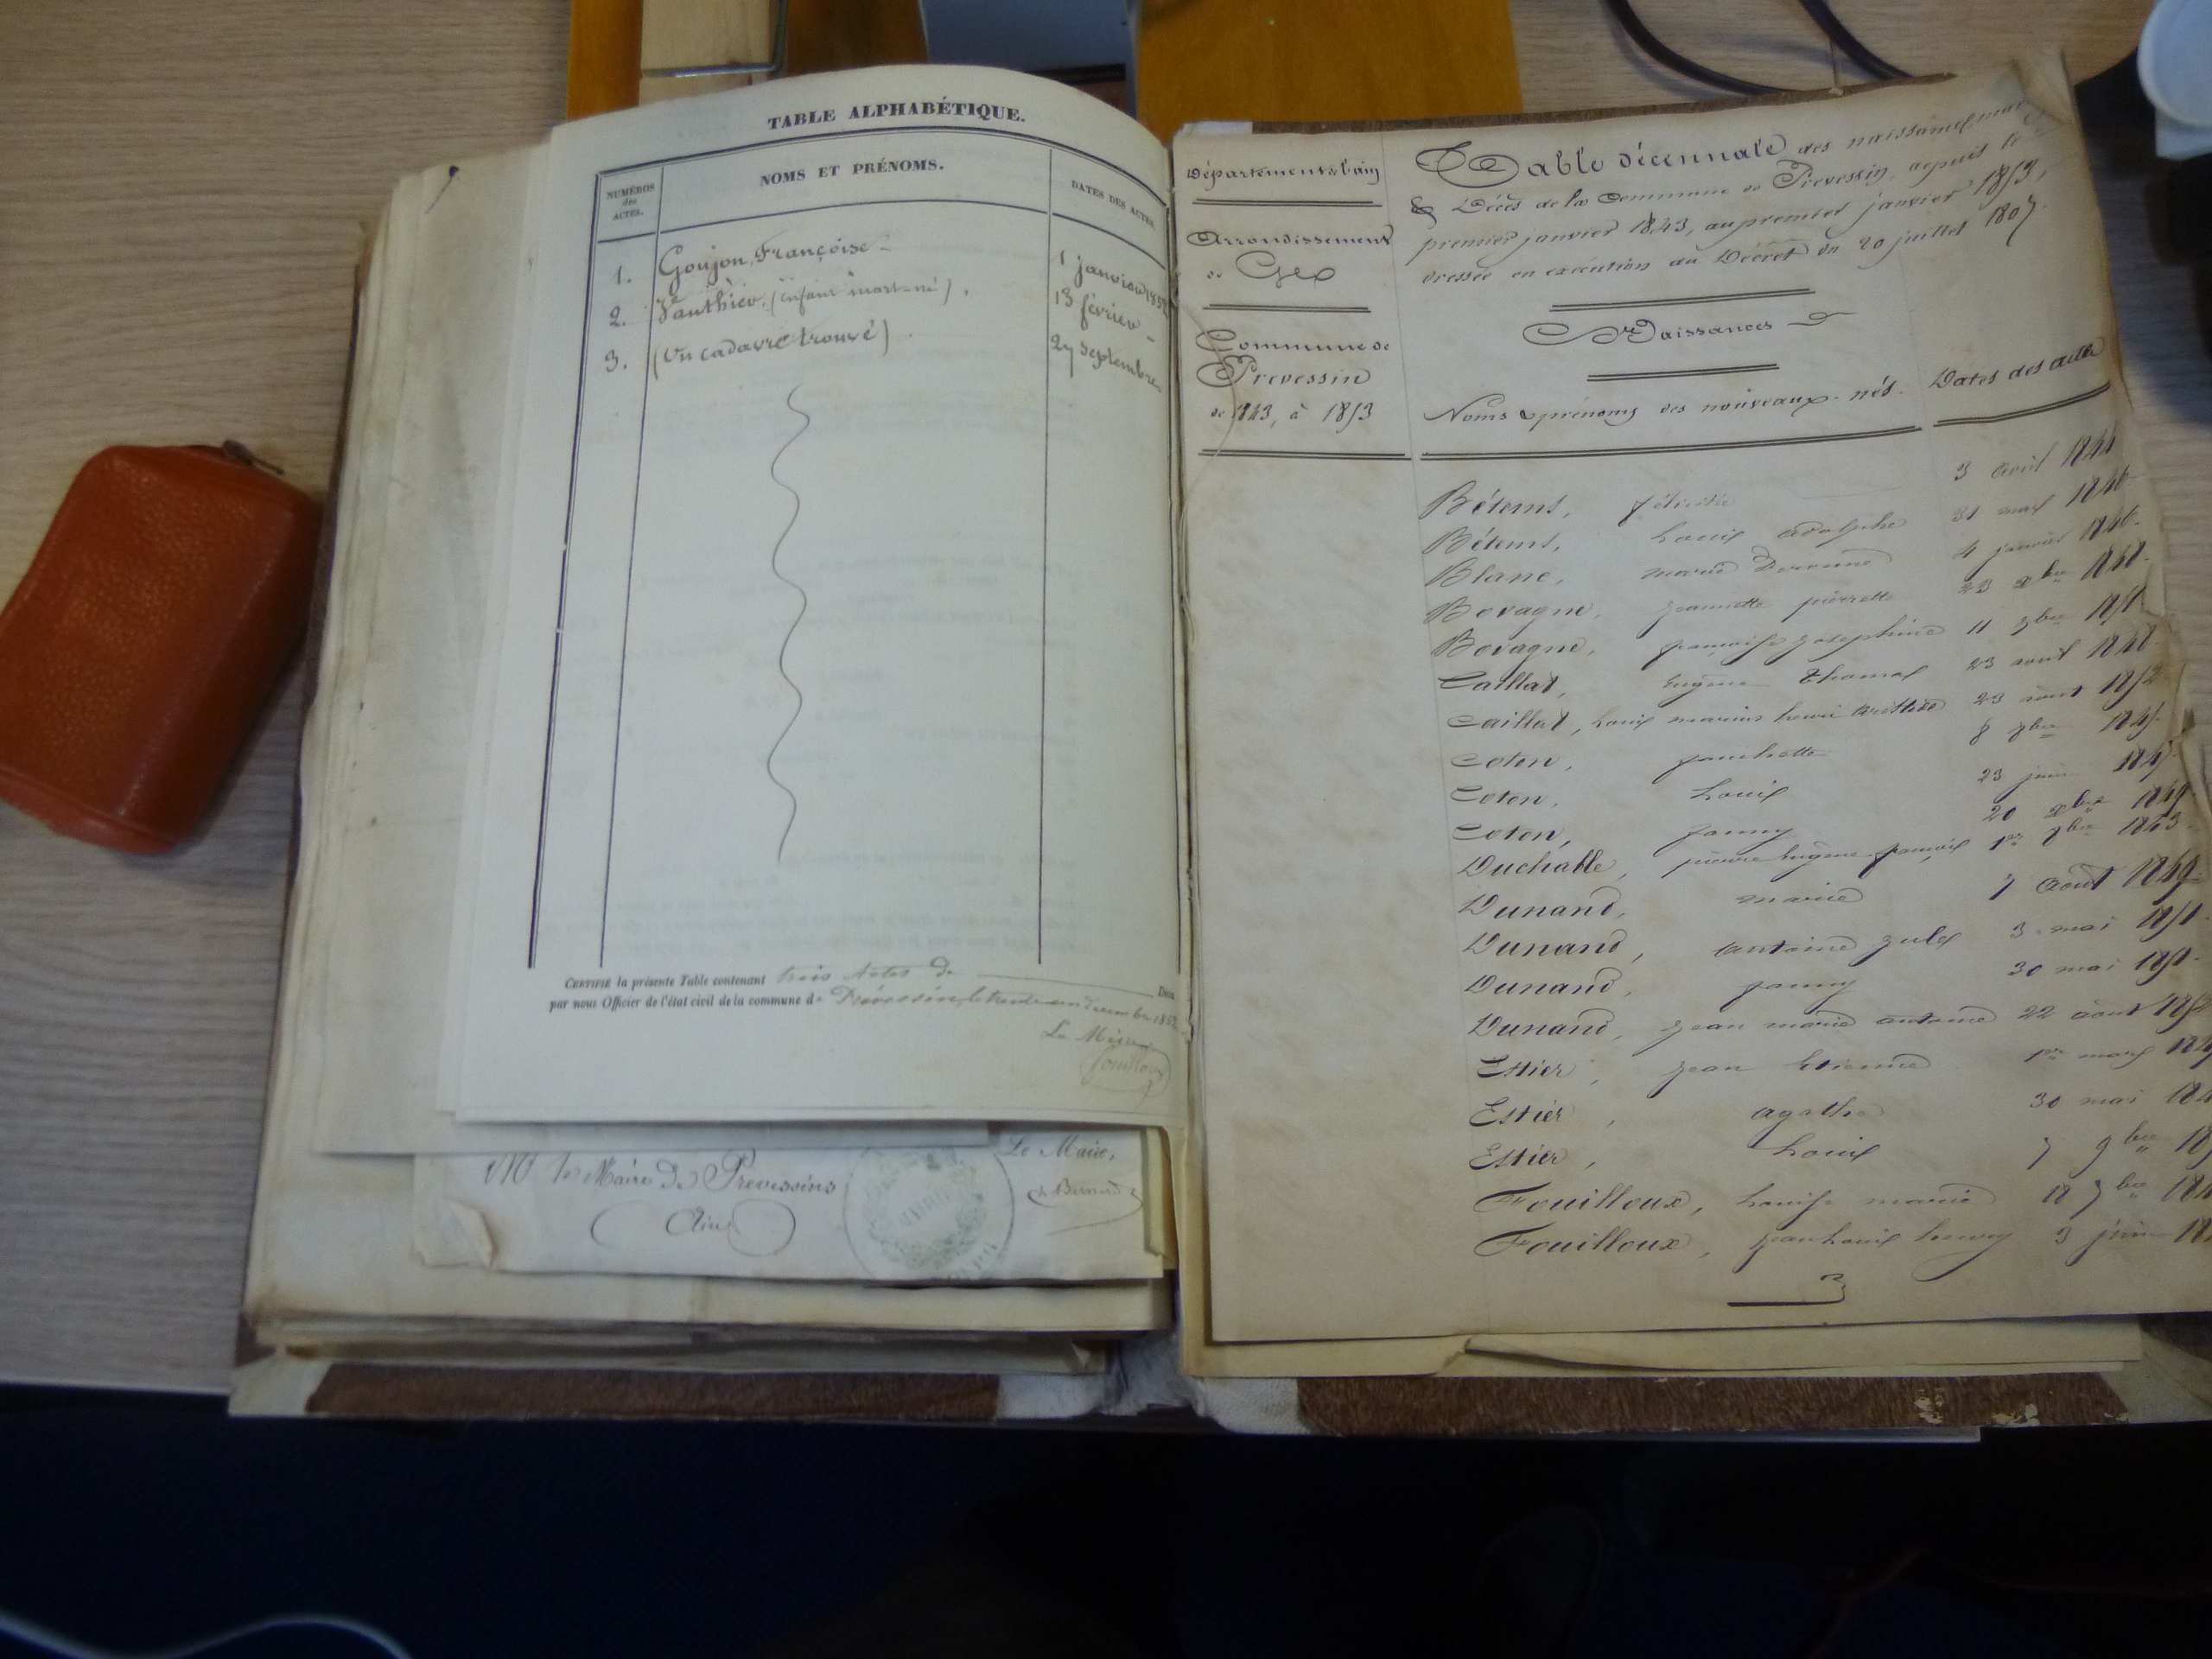 TABLE ALPHABÉTIQUE.
NUMÉROS des ACTES.
NOMS ET PRÉNOMS.
DATES DES ACTES.
1. Goujon, Françoise - 1 janvier 1852
2. Vauthier. (enfant mort-né). 13 février -
3. (Un cadavre trouvé). 27 septembre.
CERTIFIÉ la présente Table contenant trois Actes de
par nous Officier de l'état civil de la commune de Prévessin, le trente un Décembre 1852
Le Maire
Fouilloux
Le Maire,
Mr le Maire de Prevessins
Ain
Département de l'ain
Arrondissement
de Gex
Commune de
Prevessin
de 1843, à 1853
Table décennale des naissances
& Décès de la Commune de Prevessin, depuis le
premier janvier 1843, au premier janvier 1853,
dressée en exécution du Décret du 20 juillet 1807.
Naissances
Noms & prénoms des nouveaux-nés. Dates des actes
Bétems, félicitée 3 avril
Bétems, Louis adolphe 31 mars 1846.
Blanc, marie 4 janvier
Bovagne, jeannette pierrette 23 xbre
Bovagne, françoise josephine 11
Caillat, Eugène Thomas 23 août 1848
Caillat, Louis marius henri aristide 23 août 1852
Coten, franchette 8
Coten, Louis 23 juin
Coten, fanny 20 xbre 1849
Duchable, pierre Eugène françois 1er 1843.
Dunand, marie 7 août 1849.
Dunand, antoine jules 3 mai 1851.
Dunand, fanny 30 mai
Dunand, jean marie antoine 22 août
Estier, jean Etienne 1er mars
Estier, agathe 30 mai
Estier, Louis 7 9bre
Fouilloux, Louise marie 18 7bre
Fouilloux, jean Louis henry 3 juin